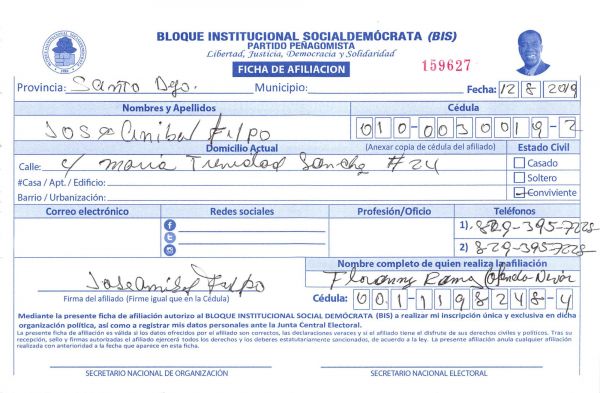 BLOQUE INSTITUCIONAL SOCIALDEMÓCRATA (BIS)
PARTIDO PEÑAGOMISTA
Libertad, Justicia, Democracia y Solidaridad
FICHA DE AFILIACION
159627
Provincia: Santo Dgo. Municipio: Fecha: 12 8 2019
Nombres y Apellidos Cédula
Jose Anibal Filpo 010-0030019-2
Domicilio Actual (Anexar copia de cédula del afiliado) Estado Civil
Calle: C/ Maria Trinidad Sanchez # 24 Casado
#Casa / Apt. / Edificio: Soltero
Barrio / Urbanización: Conviviente
Correo electrónico Redes sociales Profesión/Oficio Teléfonos
1). 829-395-7228
2) 829-395-7228
Nombre completo de quien realiza la afiliación
Jose Anibal Filpo
Firma del afiliado (Firme igual que en la Cédula) Cédula: 001-1198248-4
Mediante la presente ficha de afiliación autorizo al BLOQUE INSTITUCIONAL SOCIAL DEMÓCRATA (BIS) a realizar mi inscripción única y exclusiva en dicha
organización política, así como a registrar mis datos personales ante la Junta Central Electoral.
La presente ficha de afiliación es válida si los datos ofrecidos por el afiliado son correctos, las declaraciones veraces y si el afiliado tiene el disfrute de sus derechos civiles y políticos. Tras su
recepción, sello y firmas autorizadas el afiliado ejercerá todos los derechos y los deberes estatutariamente sancionados, de acuerdo a la ley. La presente afiliación anula cualquier afiliación
realizada con anterioridad a la fecha que aparece en esta ficha.
SECRETARIO NACIONAL DE ORGANIZACIÓN SECRETARIO NACIONAL ELECTORAL